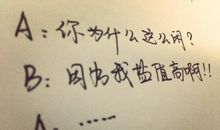 A：你为什么这么闲？
B：因为我盐值高啊！！
A：……